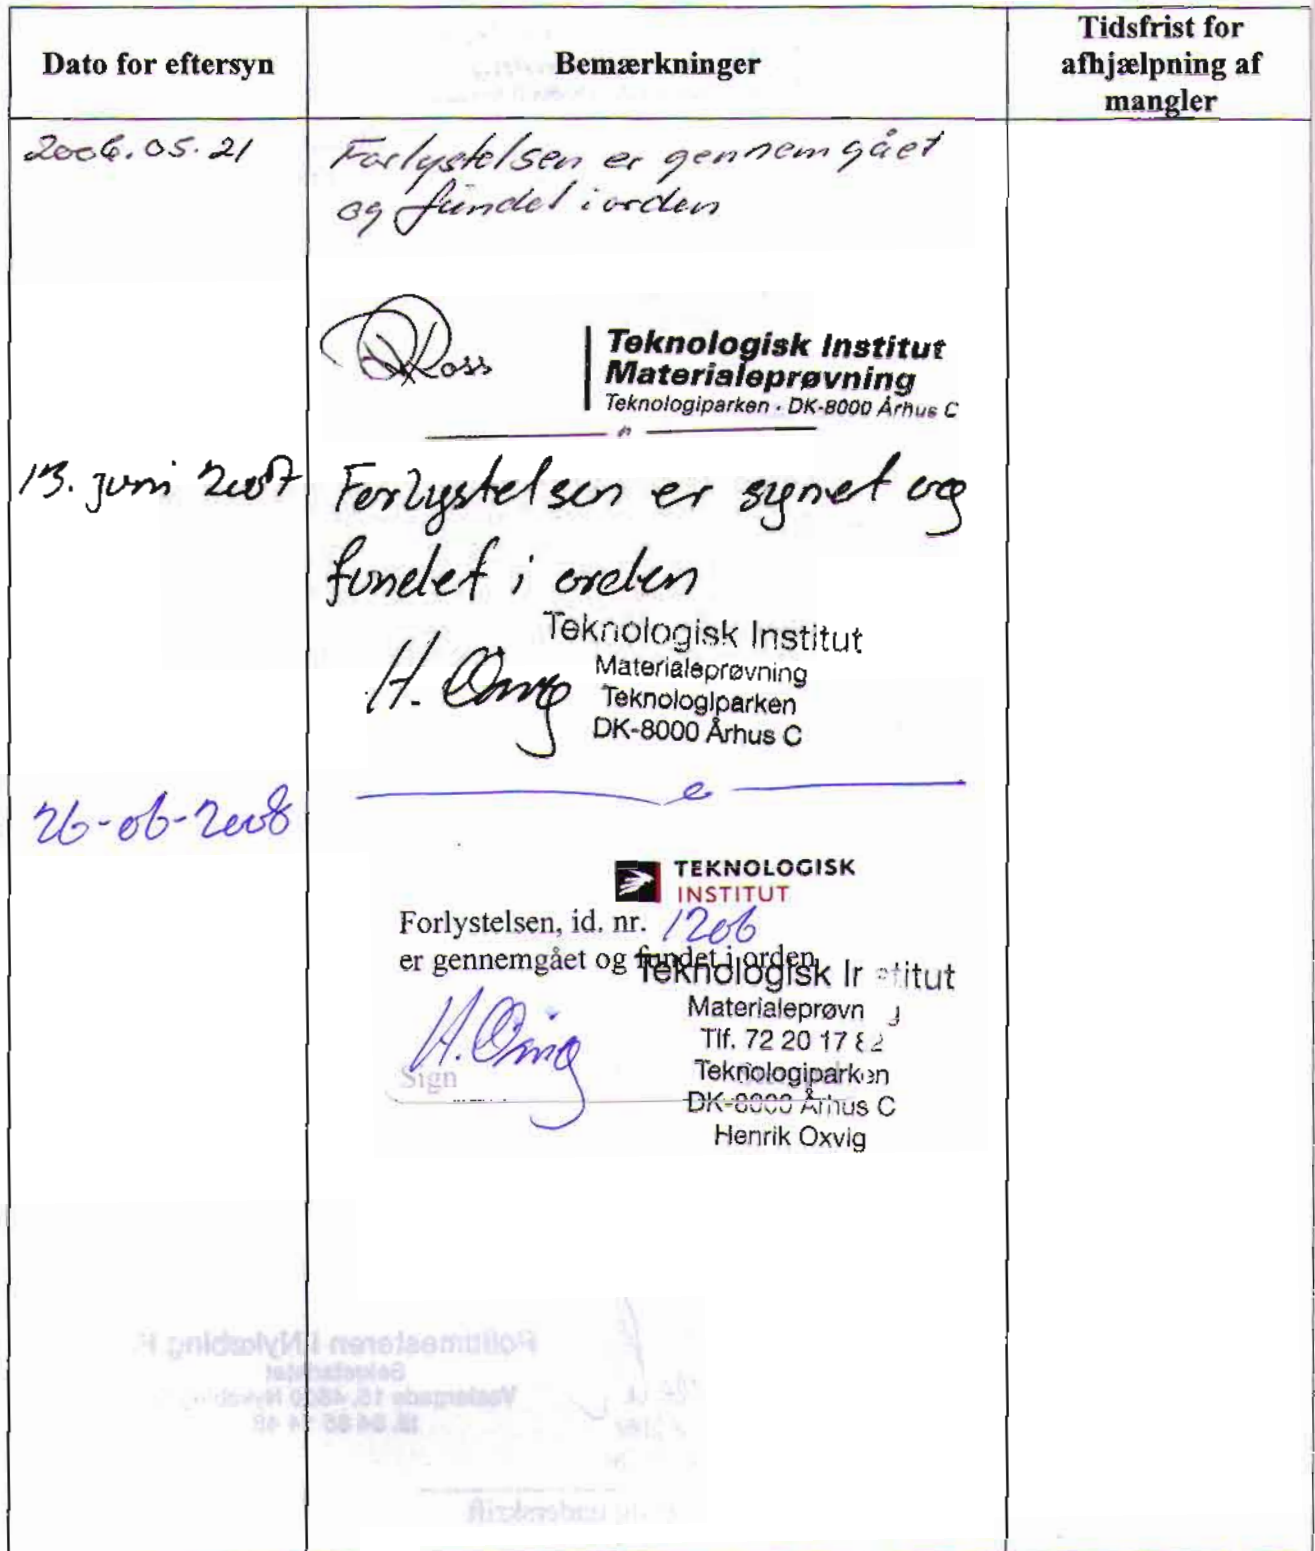 Dato for eftersyn
Bemærkninger
Tidsfrist for
afhjælpning af
mangler
2006.05.21
Forlystelsen er gennemgået
og fundet i orden
Ross
Teknologisk Institut
Materialeprøvning
Teknologiparken · DK-8000 Århus C
13. juni 2007
Forlystelsen er synet og
fundet i orden
Teknologisk Institut
Materialeprøvning
Teknologiparken
DK-8000 Århus C
H. Oxvig
26-06-2008
TEKNOLOGISK
INSTITUT
Forlystelsen, id. nr. 1206
er gennemgået og fundet i orden
Teknologisk Institut
Materialeprøvning
Tlf. 72 20 17 82
Teknologiparken
DK-8000 Århus C
Henrik Oxvig
H. Oxvig
Sign
Politimesteren i Nykøbing F.
Sekretariatet
Vestergade 15, 4800 Nykøbing
underskrift